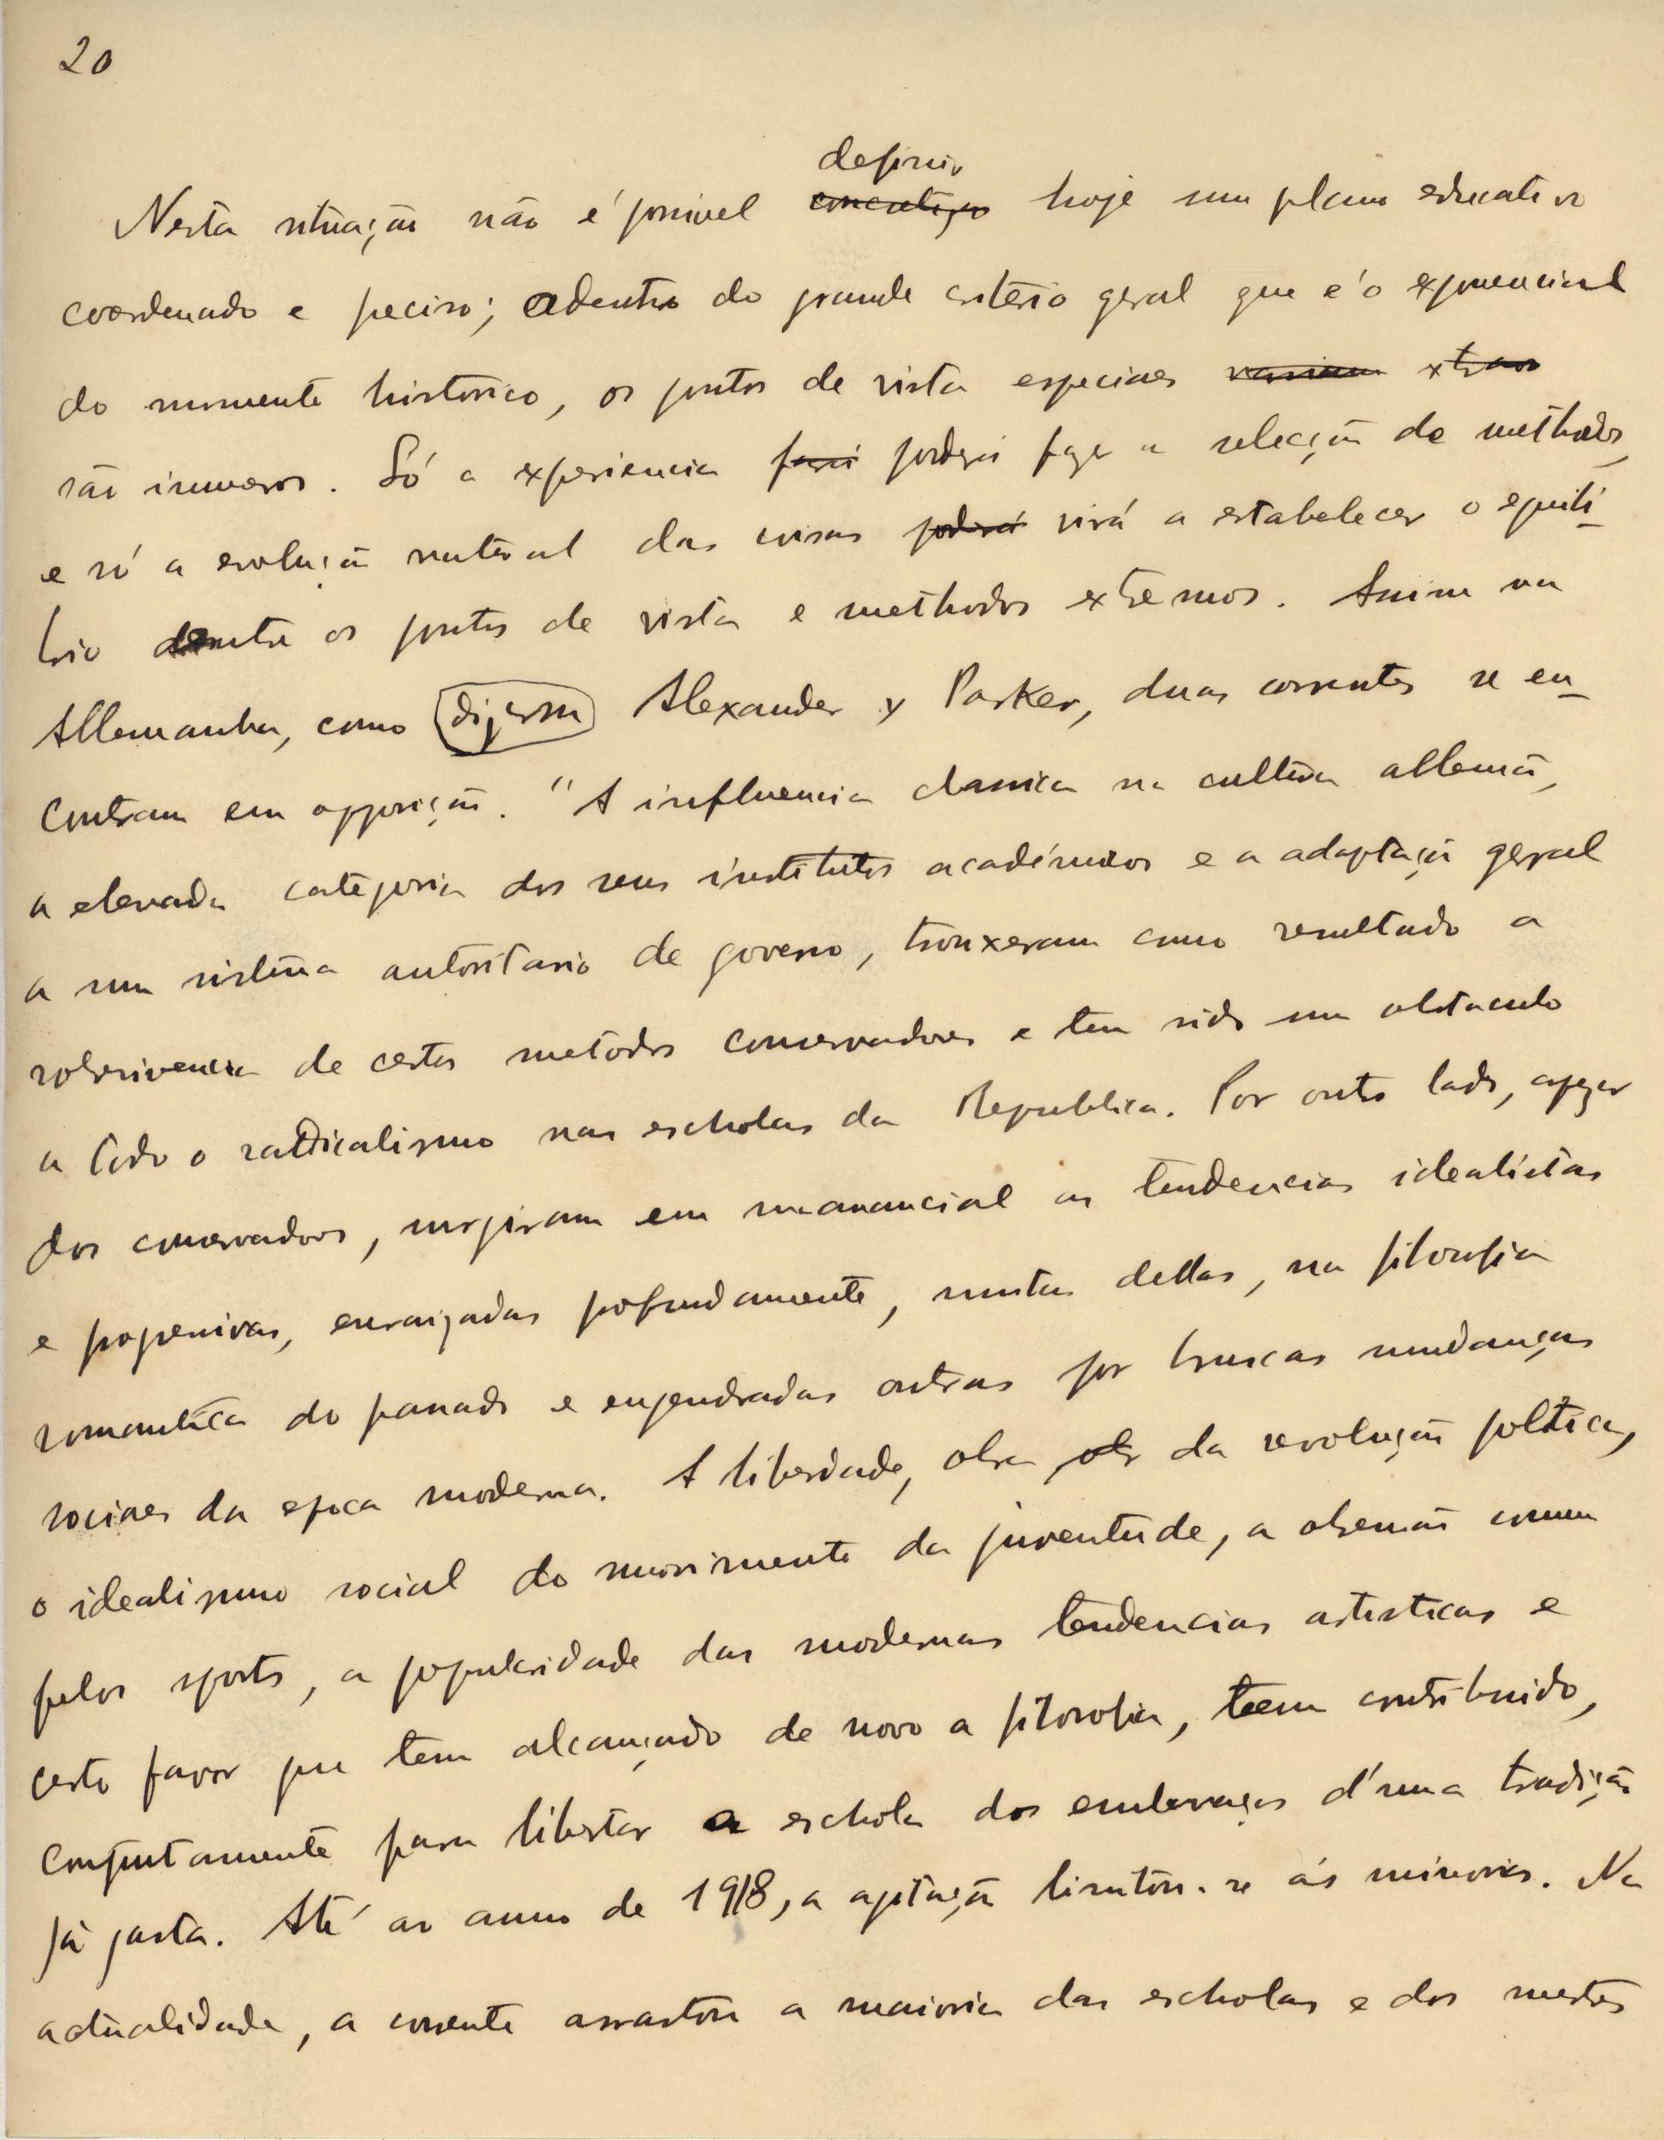 20
definir
Nesta situação não é possivel hoje um plano educativo
coordenado e preciso; adentro do grande critério geral que é o exponencial
do momento historico, os pontos de vista especiaes variam extraor
são inumeros. Só a experiencia fará poderá fazer a selecção de methodos,
e só a evolução natural das coisas poderá virá a estabelecer o equili-
brio dentre os pontos de vista e methodos extremos. Assim na
Allemanha, como dizem Alexander y Parker, duas correntes se en-
contram em opposição. "A influencia classica na cultura allemã,
a elevada categoria dos seus institutos académicos e a adaptação geral
a um sistema autoritario de governo, trouxeram como resultado a
sobrevivencia de certos metodos conservadores e tem sido um obstaculo
a todo o radicalismo nas escholas da Republica. Por outro lado, apezar
dos conservadores, surgiram em manancial as tendencias idealistas
e progressivas, enraizadas profundamente, muitas dellas, na filosofia
romantica do passado e engendradas outras por bruscas mudanças
sociaes da epoca moderna. A liberdade, obra da revolução politica,
o idealismo social do movimento da juventude, a obsessão comum
pelos sports, a popularidade das modernas tendencias artisticas e
certo favor que tem alcançado de novo a filosofia, teem contribuido,
conjuntamente para libertar a eschola dos embaraços d'uma tradição
já gasta. Até ao anno de 1918, a agitação limitou-se ás minorias. Na
actualidade, a corrente arrastou a maioria das escholas e dos mestres